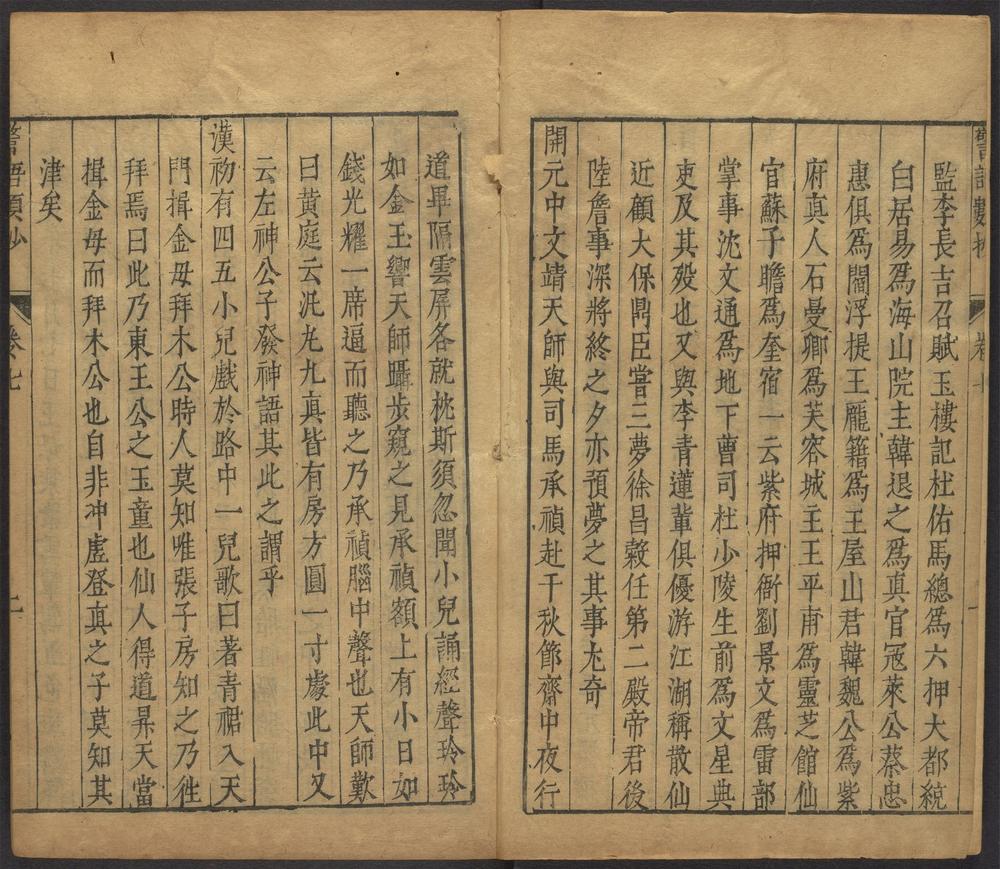 監李長吉召賦玉樓記杜佑馬總爲六押大都統
白居易爲海山院主韓退之爲真官冦萊公蔡忠
惠俱爲閻浮提王龐籍爲王屋山君韓魏公爲紫
府真人石曼卿爲芙容城主王平甫爲靈芝館仙
官蘇子瞻爲奎宿一云紫府押衙劉景文爲雷部
掌事沈文通爲地下曹司杜少陵生前爲文星典
吏及其殁也又與李青蓮輩俱優游江湖稱散仙
近顧大保鼎臣嘗三夢徐昌穀任第二殿帝君後
陸詹事深將終之夕亦預夢之其事尤奇
開元中文靖天師與司馬承禎赴千秋節齋中夜行
道畢隔雲屏各就枕斯須忽聞小兒誦經聲玲玲
如金玉響天師躡步窺之見承禎額上有小日如
錢光耀一席逼而聽之乃承禎腦中聲也天師歎
曰黃庭云泥丸九真皆有房方圓一寸處此中又
云左神公子發神語其此之謂乎
漢初有四五小兒戲於路中一兒歌曰著青裙入天
門揖金母拜木公時人莫知唯張子房知之乃徃
拜焉曰此乃東王公之玉童也仙人得道昇天當
揖金母而拜木公也自非冲虛登真之子莫知其
津矣
卷七
二